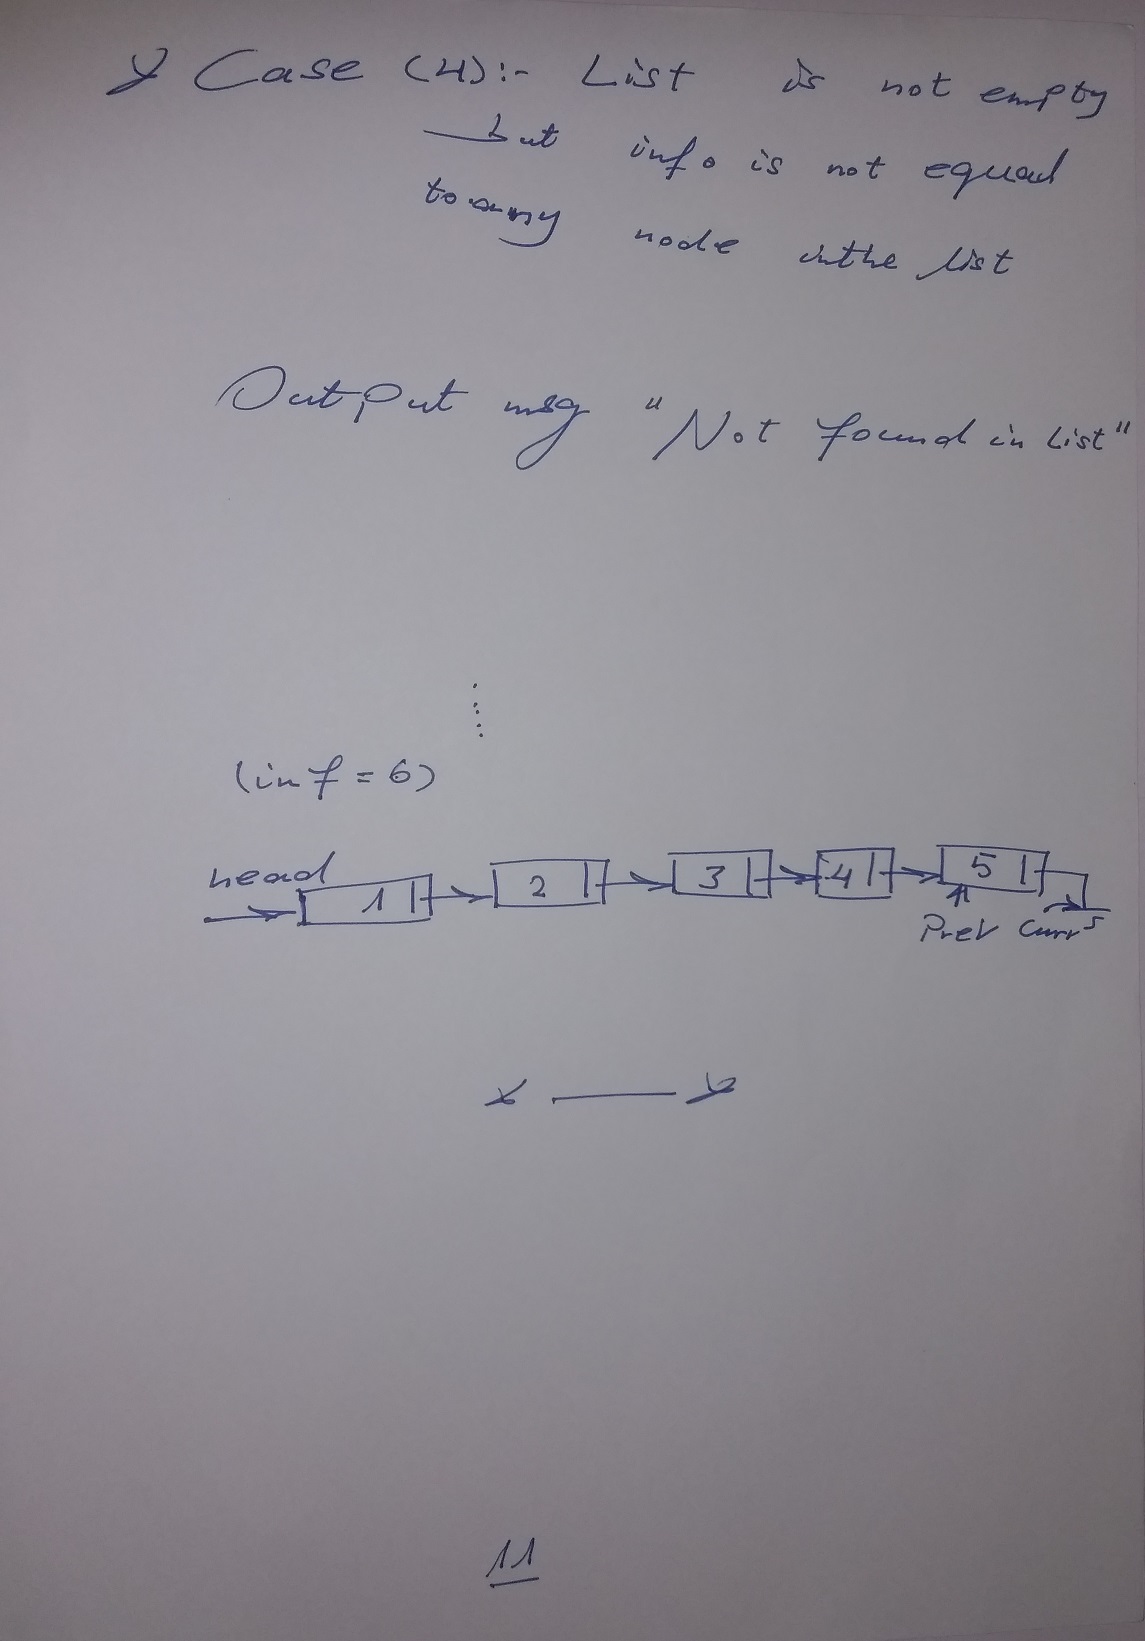 Case (4):- List is not empty
but info is not equal
to any node in the list
Output msg "Not found in List"
(inf = 6)
head
1 2 3 4 5
Prev Curr
11